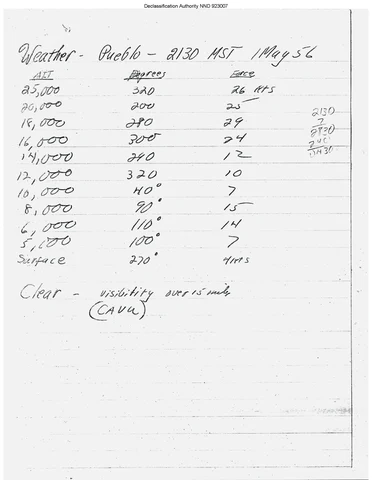 Declassification Authority NND 923007
Weather - Pueblo - 2130 MST 1 May 56
ALT Degrees Force
25,000 320 26 KTS
20,000 200 25
18,000 280 29
16,000 300 24
14,000 240 12
12,000 320 10
10,000 40° 7
8,000 90° 15
6,000 110° 14
5,000 100° 7
Surface 270° 4 KTS
2130
7
2830
Clear - visibility over 15 miles
(CAVU)